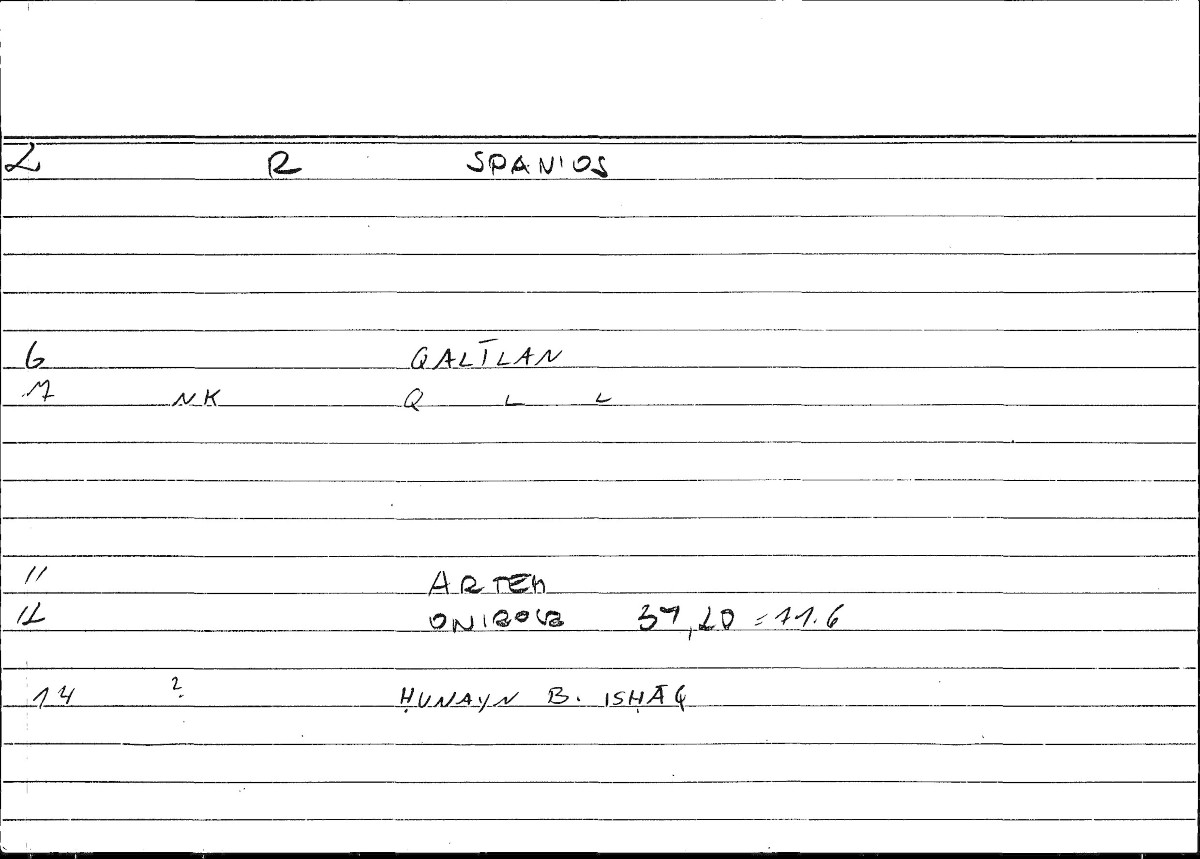 2 R SPANIOS
6 QALĪLAN
7 NK Q L L
11 ARTEM
12 ONIROCR 37,20 = 11.6
14 ? ḤUNAYN B. ISḤĀQ